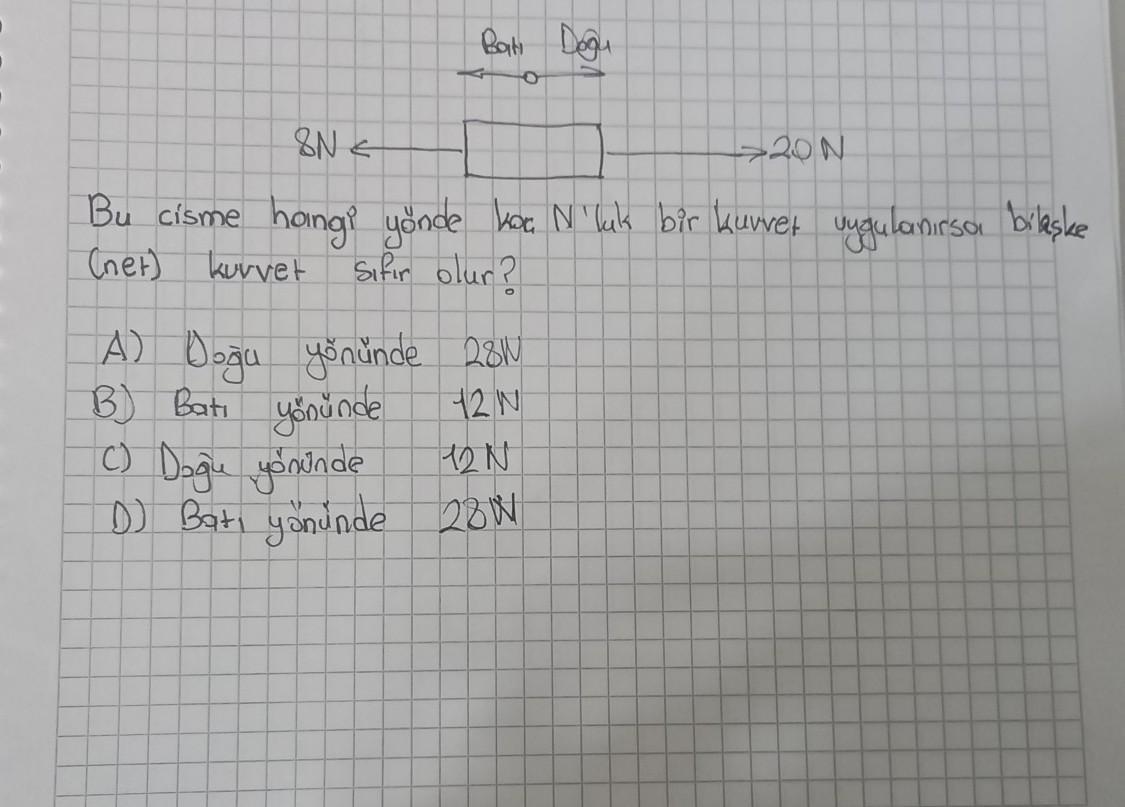 Batı Doğu
8N 20N
Bu cisme hangi yönde kaç N'luk bir kuvvet uygulanırsa bileşke
(net) kuvvet sıfır olur?
A) Doğu yönünde 28N
B) Batı yönünde 12N
C) Doğu yönünde 12N
D) Batı yönünde 28N